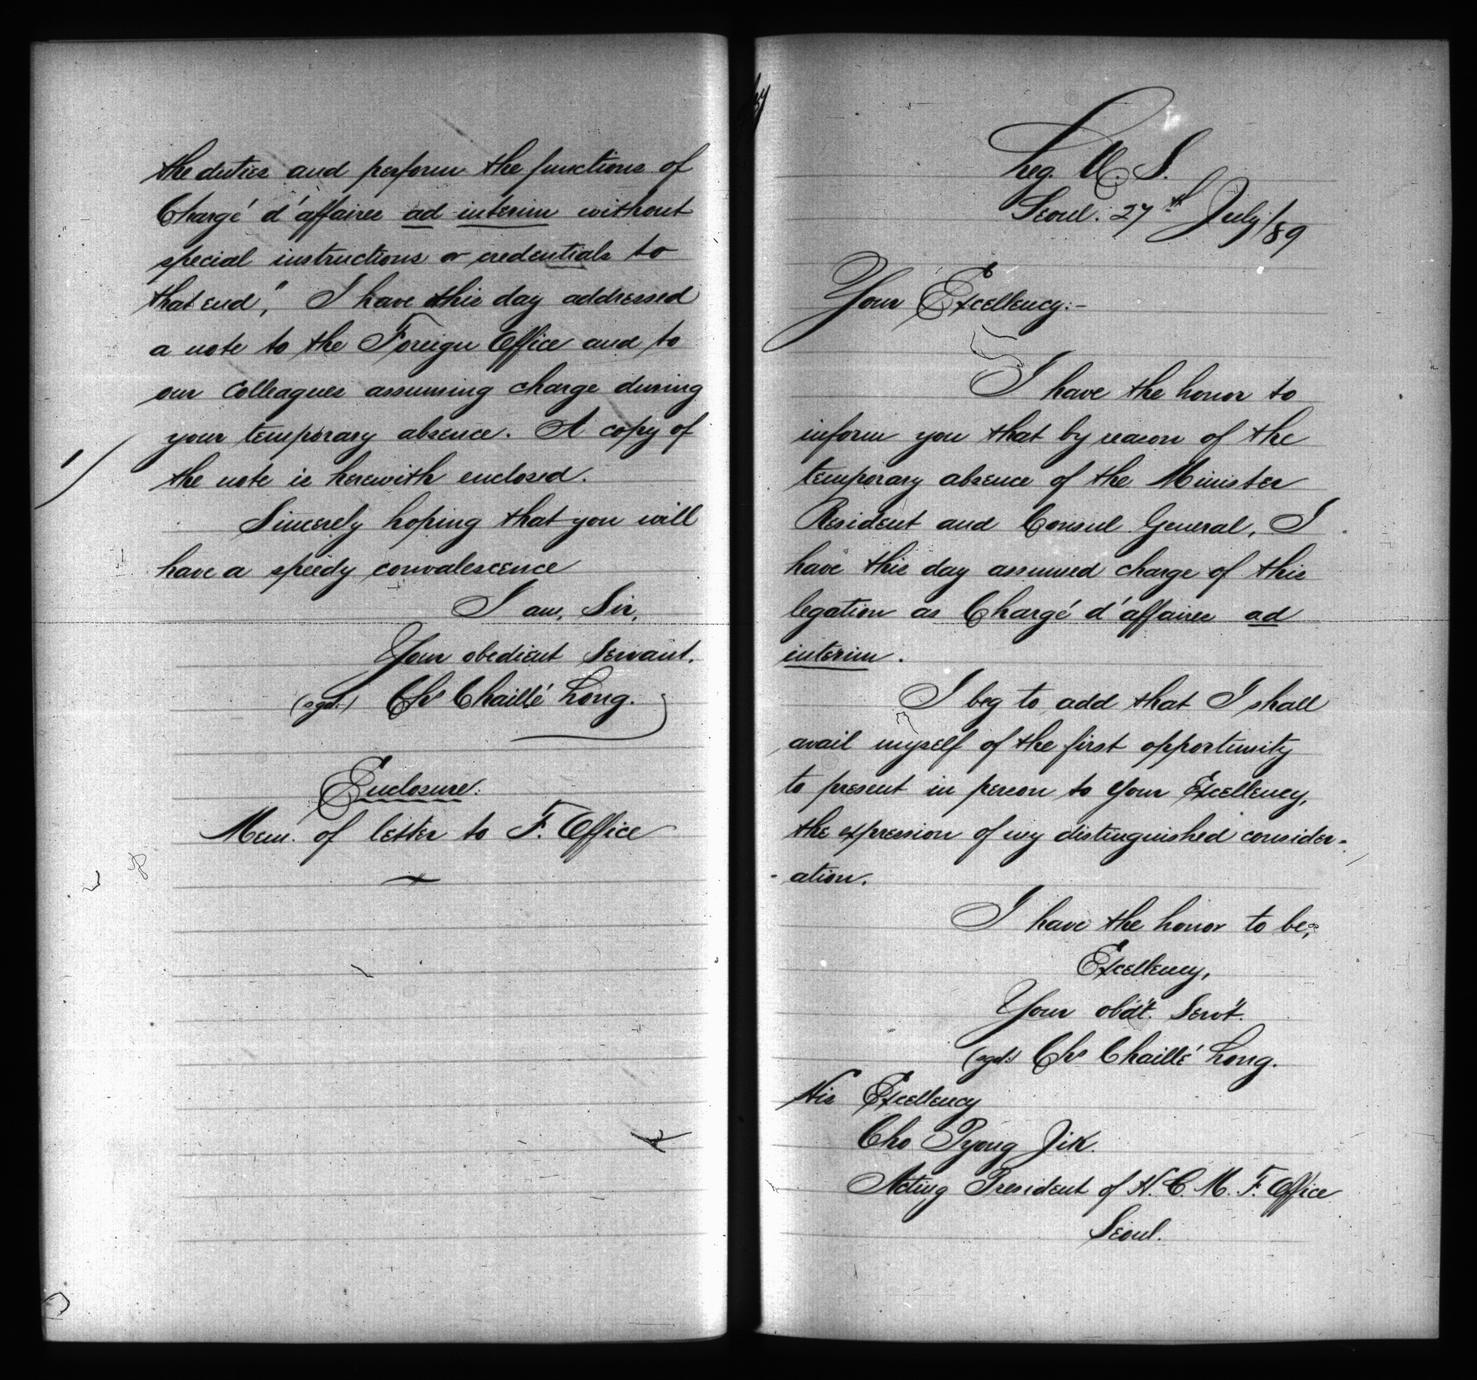 the duties and perform the functions of
Chargé d'affaires ad interim without
special instructions or credentials to
that end", I have this day addressed
a note to the Foreign Office and to
our Colleagues assuming charge during
your temporary absence. A copy of
1/ the note is herewith enclosed.
Sincerely hoping that you will
have a speedy convalescence
I am, Sir,
Your obedient Servant.
(sgd.) Chs Chaillé Long.
Enclosure:
Mem. of letter to F. Office
Leg. U. S.
Seoul. 27th July/89
Your Excellency:-
I have the honor to
inform you that by reason of the
temporary absence of the Minister
Resident and Consul General, I
have this day assumed charge of this
legation as Chargé d'affaires ad
interim.
I beg to add that I shall
avail myself of the first opportunity
to present in person to Your Excellency,
the expression of my distinguished consider-
-ation.
I have the honor to be,
Excellency,
Your obdt. Servt.
(sgd.) Chs Chaillé Long.
His Excellency
Cho Pyong Jik.
Acting President of H. C. M. F. Office
Seoul.